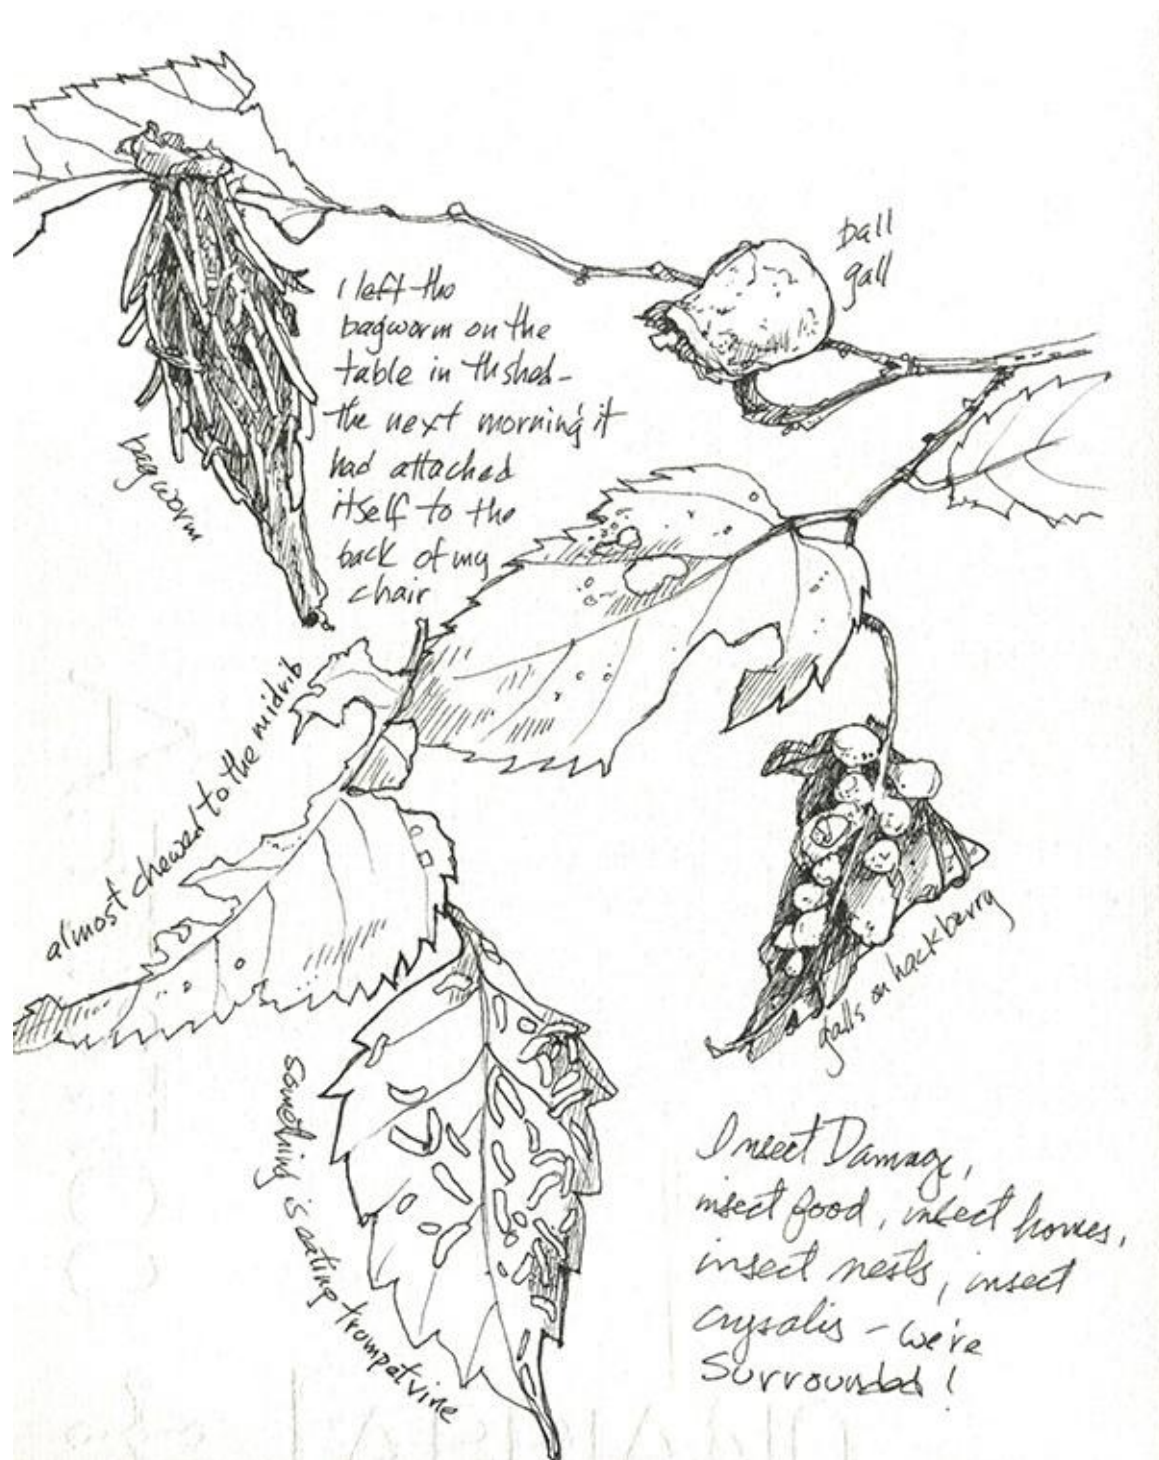 ball
gall
I left the
bagworm on the
table in th shed -
the next morning it
had attached
itself to the
back of my
chair
bagworm
almost chewed to the midrib
galls on hackberry
something is eating trumpetvine
Insect Damage,
insect food, insect homes,
insect nests, insect
crysalis - we're
Surrounded!